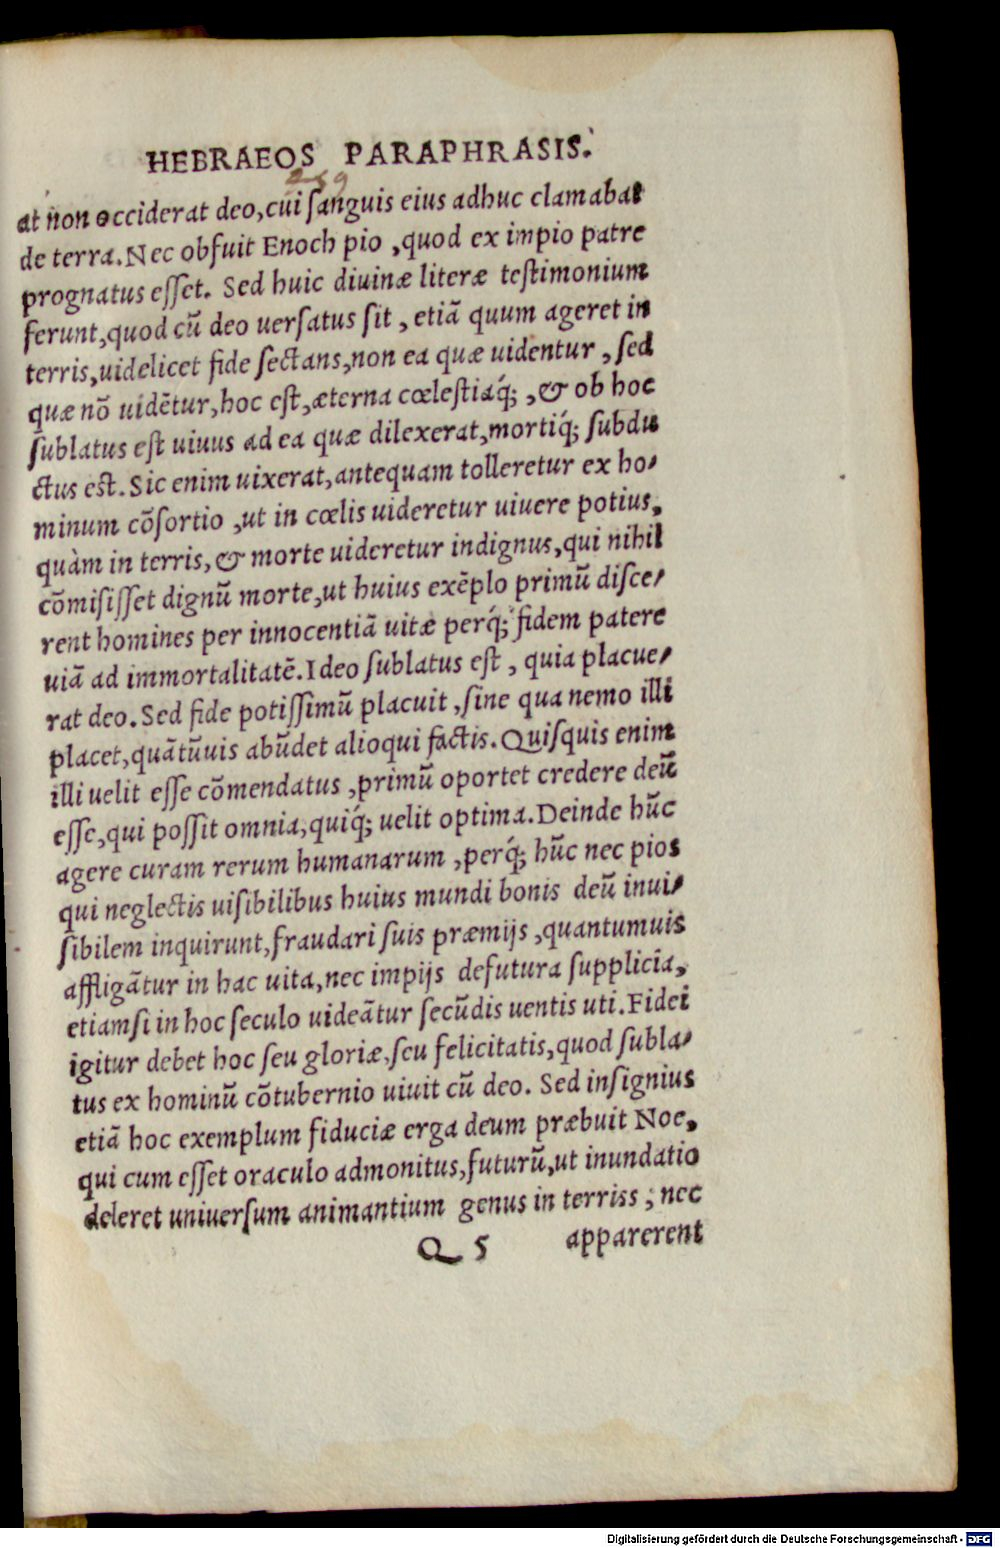 HEBRAEOS PARAPHRASIS.
259
at non occiderat deo, cui ſanguis eius adhuc clamabat
de terra. Nec obfuit Enoch pio, quod ex impio patre
prognatus eſſet. Sed huic diuinæ literæ teſtimonium
ferunt, quod cũ deo uerſatus ſit, etiã quum ageret in
terris, uidelicet fide ſectans, non ea quæ uidentur, ſed
quæ nõ uidẽtur, hoc eſt, æterna cœleſtiaq́;, & ob hoc
ſublatus eſt uiuus ad ea quæ dilexerat, mortiq́; ſubdu
ctus eſt. Sic enim uixerat, antequam tolleretur ex ho-
minum cõſortio, ut in cœlis uideretur uiuere potius,
quàm in terris, & morte uideretur indignus, qui nihil
cõmiſiſſet dignũ morte, ut huius exẽplo primũ diſce-
rent homines per innocentiã uitæ perq́; fidem patere
uiã ad immortalitatẽ. Ideo ſublatus eſt, quia placue-
rat deo. Sed fide potiſſimũ placuit, ſine qua nemo illi
placet, quãtũuis abũdet alioqui factis. Quiſquis enim
illi uelit eſſe cõmendatus, primũ oportet credere deũ
eſſe, qui poſſit omnia, quiq́; uelit optima. Deinde hũc
agere curam rerum humanarum, perq́; hũc nec pios
qui neglectis uiſibilibus huius mundi bonis deũ inui-
ſibilem inquirunt, fraudari ſuis præmijs, quantumuis
affligãtur in hac uita, nec impijs defutura ſupplicia,
etiamſi in hoc ſeculo uideãtur ſecũdis uentis uti. Fidei
igitur debet hoc ſeu gloriæ, ſeu felicitatis, quod ſubla-
tus ex hominũ cõtubernio uiuit cũ deo. Sed inſignius
etiã hoc exemplum fiduciæ erga deum præbuit Noe,
qui cum eſſet oraculo admonitus, futurũ, ut inundatio
deleret uniuerſum animantium genus in terriss; nec
Q 5 apparerent
Digitalisierung gefördert durch die Deutsche Forschungsgemeinschaft - DFG